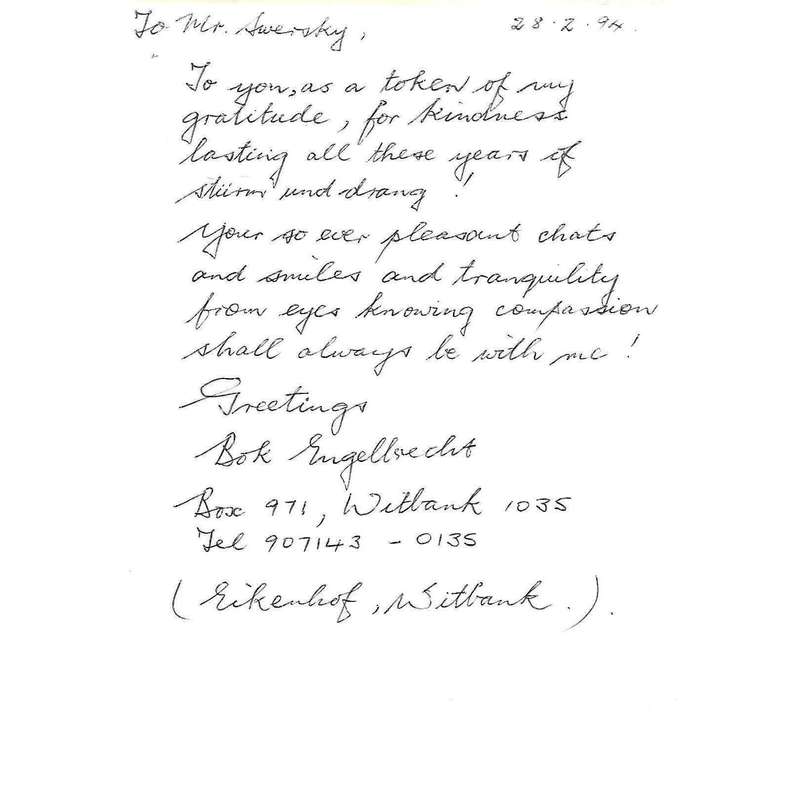 To Mr. Swersky, 28.2.94.
To you, as a token of my
gratitude, for kindness
lasting all these years of
stürm und drang !
Your so ever pleasant chats
and smiles and tranquility
from eyes knowing compassion
shall always be with me !
Greetings
Bok Engelbrecht
Box 971, Witbank 1035
Tel 907143 - 0135
(Eikenhof, Witbank.).